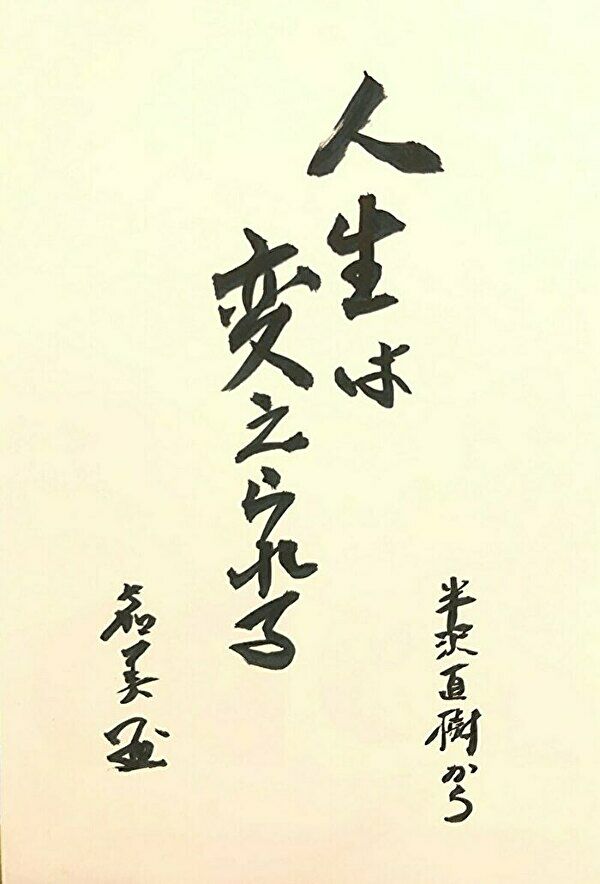 半沢直樹から
人生は
変えられる
知美